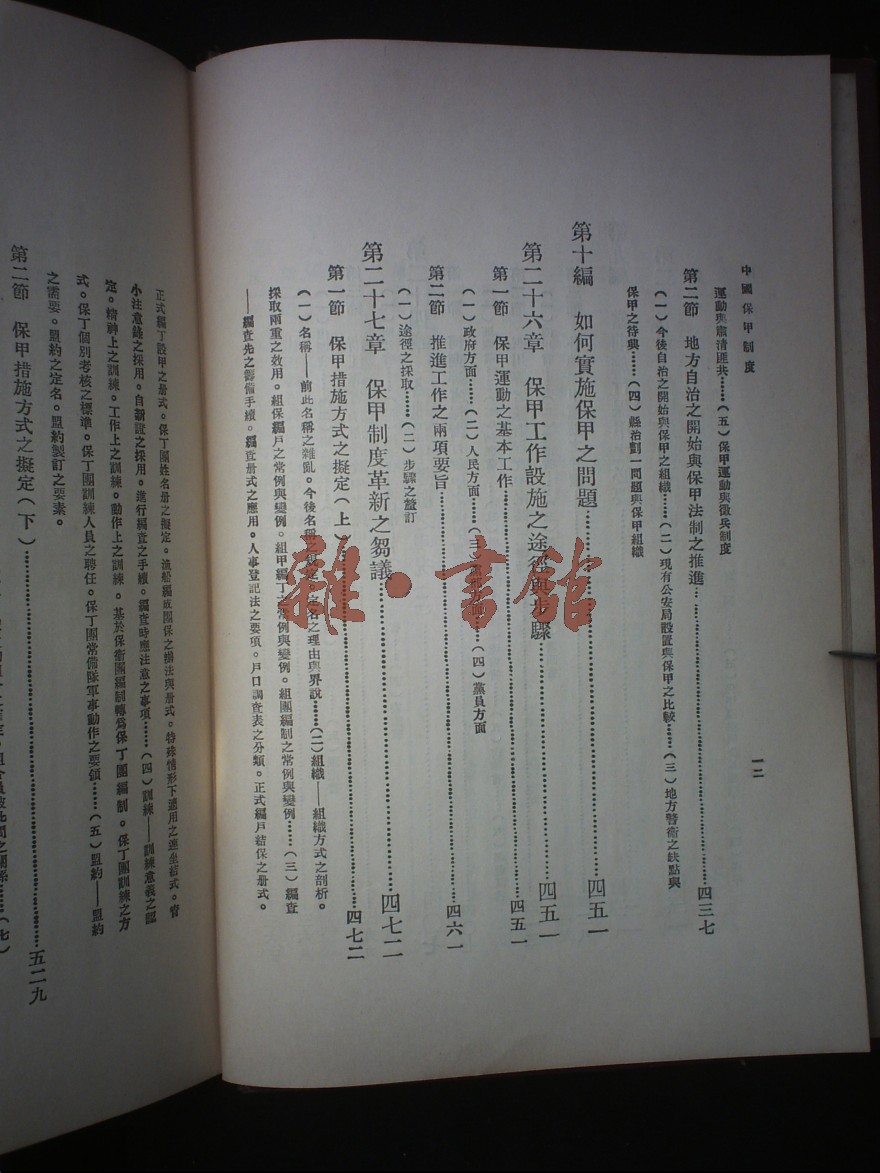 中國保甲制度
一二
運動與肅清匪共……(五)保甲運動與徵兵制度
第二節 地方自治之開始與保甲法制之推進……四三七
(一)今後自治之開始與保甲之組織……(二)現有公安局設置與保甲之比較……(三)地方警衞之缺點與
保甲之待興……(四)縣治劃一問題與保甲組織
第十編 如何實施保甲之問題……四五一
第二十六章 保甲工作設施之途徑與步驟……四五一
第一節 保甲運動之基本工作……四五一
(一)政府方面……(二)人民方面……(三)黨部方面……(四)黨員方面
第二節 推進工作之兩項要旨……四六一
(一)途徑之採取……(二)步驟之釐訂
第二十七章 保甲制度革新之芻議……四七二
第一節 保甲措施方式之擬定(上)……四七二
(一)名稱——前此名稱之雜亂。今後名稱之規定。定名之理由與界說……(二)組織——組織方式之剖析。
採取兩重之效用。組保編戶之常例與變例。組甲編丁之常例與變例。組團編制之常例與變例……(三)編查
——編查先之籌備手續。編查册式之應用。人事登記法之要項。戶口調查表之分類。正式編戶結保之册式。
正式編丁設甲之册式。保丁團姓名册之擬定。漁船編成團保之辦法與册式。特殊情形下適用之連坐結式。實
小注意錄之採用。自新證之採用。進行編查之手續。編查時應注意之事項……(四)訓練——訓練意義之認
定。精神上之訓練。工作上之訓練。動作上之訓練。基於保衞團編制轉爲保丁團編制。保丁團訓練之方
式。保丁個別考核之標準。保丁團訓練人員之聘任。保丁團常備隊軍事動作之要領……(五)盟約——盟約
之需要。盟約之定名。盟約製訂之要素。
第二節 保甲措施方式之擬定(下)……五二九
之關係……(七)
雜·書館